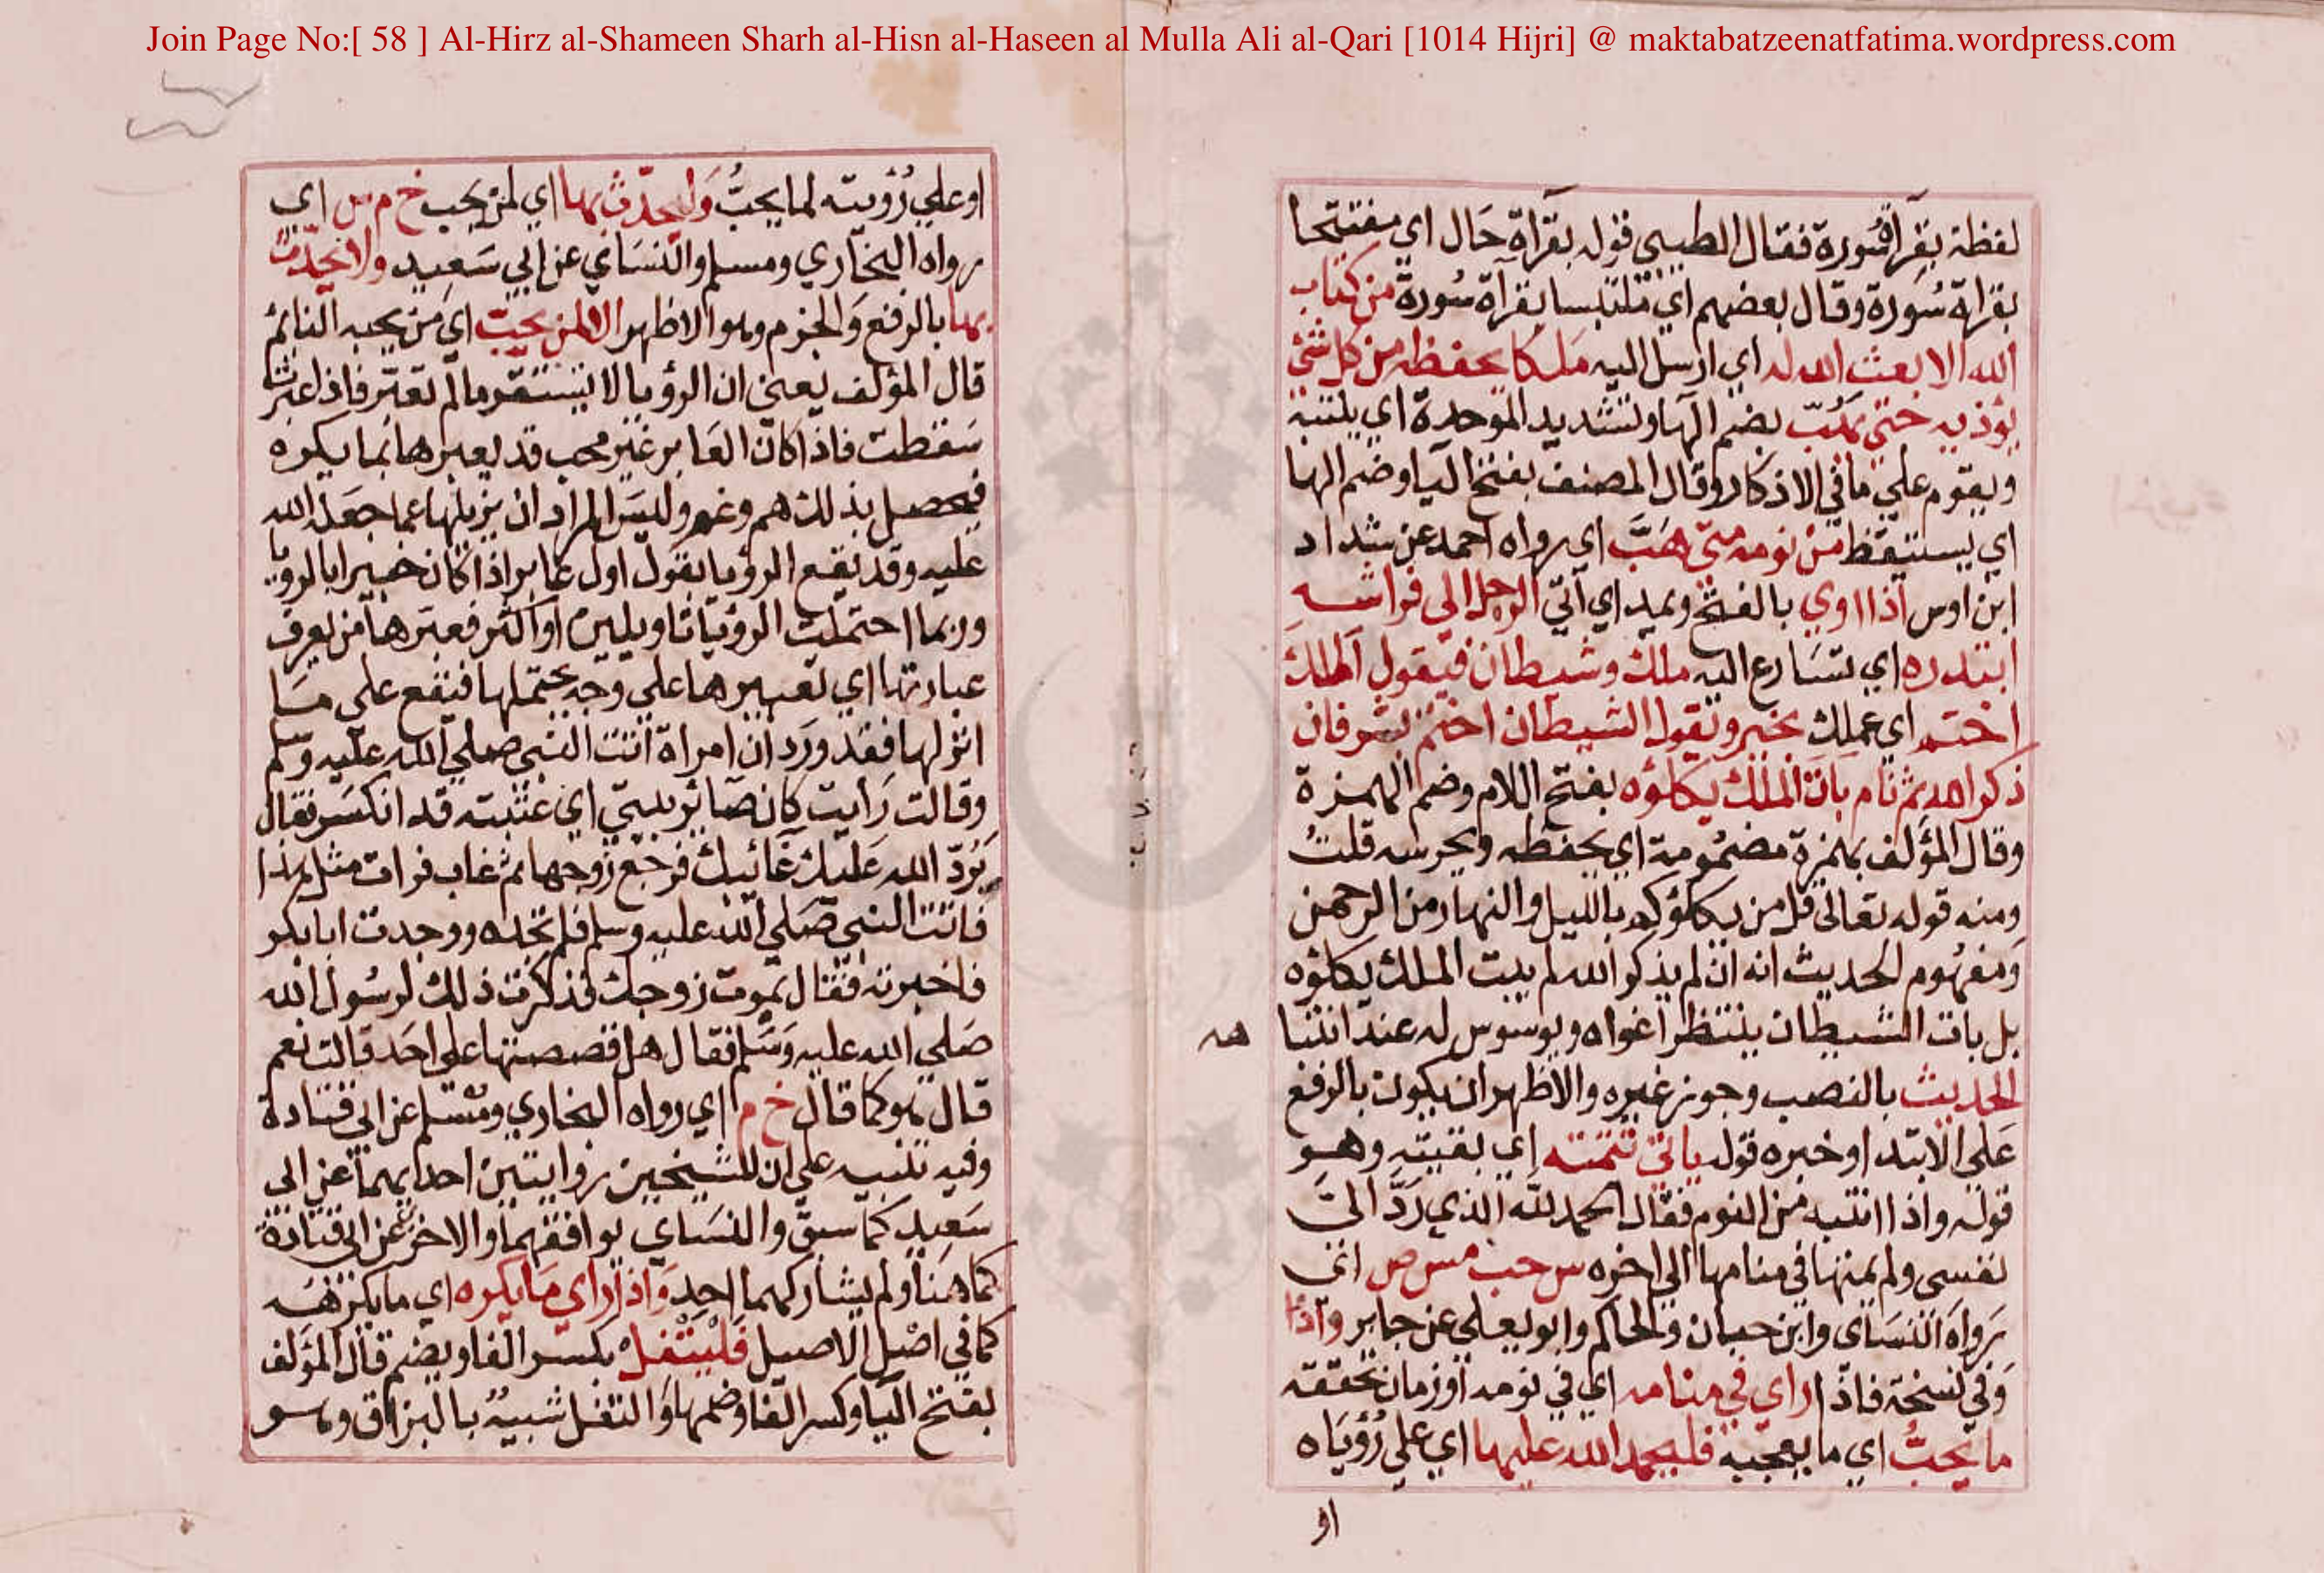 Join Page No:[ 58 ] Al-Hirz al-Shameen Sharh al-Hisn al-Haseen al Mulla Ali al-Qari [1014 Hijri] @ maktabatzeenatfatima.wordpress.com
لفظة بقرآة سورة فقال الطيبي قوله بقرآة حال اي مفتتحا
بقراة سورة وقال بعضهم اي متلبسا بقرآة سورة من كتاب
الله الا بعث الله له اي ارسل اليه ملكا يحفظه من كل شئ
يوذيه حتى يهب بضم الها وتشديد الموحدة اي ينتبه
ويقوم علي ما في الاذكار وقال المصنف بفتح اليا وضم الها
اي يستيقظ من نومه متى هب اي رواه احمد عن شداد
ابن اوس اذا اوي بالفتح ويمد اي اتي الرجل الى فراشه
ابتدره اي تسارع اليه ملك وشيطان فيقول الملك
اختم اي عملك بخير ويقول الشيطان اختم بشر فان
ذكر الله ثم نام بات الملك يكلؤه بفتح اللام وضم الهمزة
وقال المؤلف بهمزة مضمومة اي يحفظه ويحرسه قلت
ومنه قوله تعالى قل من يكلؤكم بالليل والنهار من الرحمن
ومفهوم الحديث انه ان لم يذكر الله لم يبت الملك يكلؤه
بل بات الشيطان ينتظر اغواه ويوسوس له عند انتبا
هه
الحديث بالنصب وجوز غيره والاظهر ان يكون بالرفع
على الابتدا وخبره قوله ياتي تتمته اي بقيته وهو
قوله واذا انتبه من النوم فقال الحمد لله الذي رد الي
نفسي ولم يمتها في منامها الى اخره س حب مس ص اي
رواه النسائ وابن حبان والحاكم وابو يعلي عن جابر واذا
وفي نسخة فاذا راي في منامه اي في نومه او زمان تحققه
ما يحب اي ما يعجبه فليحمد الله عليها اي علي رؤياه
او
او علي رؤيته لما يحب وليحدث بها اي لمن يحب خ م س اي
رواه البخاري ومسلم والنسائ عن ابي سعيد ولا يحدث
بها بالرفع والجزم وهو الاظهر الا لمن يحب اي من يحبه النائم
قال المؤلف يعني ان الرؤيا لا تستقر ما لم تعبر فاذا عبرت
سقطت فاذا كان العابر غير محب قد يعبرها بما يكره
فيحصل بذلك هم وغم وليس المراد ان يزيلها عما جعله الله
عليه وقد يقع الرؤيا بقول اول عابر اذا كان خبيرا بالرويا
وربما احتملت الرؤيا تاويلين او اكثر فعبرها من يعرف
عبارتها اي تعبيرها علي وجه يحتملها فيقع على مسا
انولها فقد ورد ان امراة اتت النبي صلي الله عليه وسلم
وقالت رايت كان صائر بيتي اي عتبته قد انكسر فقال
يرد الله عليك غائبك فرجع زوجها ثم غاب فرات مثل هذا
فاتت النبي صلي الله عليه وسلم فلم تجده ووجدت ابا بكر
فاخبرته فقال يموت زوجك فذكرت ذلك لرسول الله
صلي الله عليه وسلم فقال هل قصصتها على احد قالت نعم
قال هو كما قال خ م اي رواه البخاري ومسلم عن ابي قتادة
وفيه تنبيه علي ان للشيخين روايتين احدايهما عن ابي
سعيد كما سبق والنسائ يوافقهما والاخر عن ابي قتادة
كما هنا ولم يشاركهما احد واذا راي ما يكره اي ما يكرهه
كما في اصل الاصيل فليتفل بكسر الفا ويضم قال المؤلف
بفتح اليا وكسر الفا وضمها والتفل شبيه بالبزاق وهو